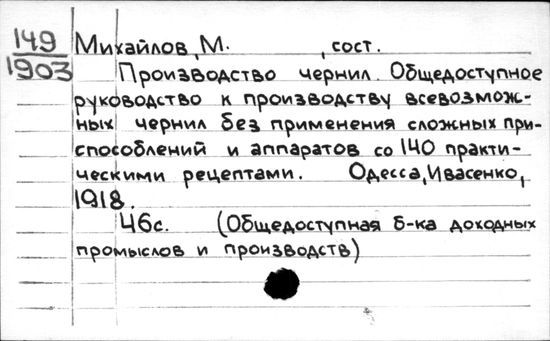 149
1903
Михайлов, М. , сост.
Производство чернил. Общедоступное
руководство к производству всевозмож-
ных чернил без применения сложных при-
способлений и аппаратов со 140 практи-
ческими рецептами. Одесса, Ивасенко,
1918.
46с. (Общедоступная б-ка доходных
промыслов и производств)